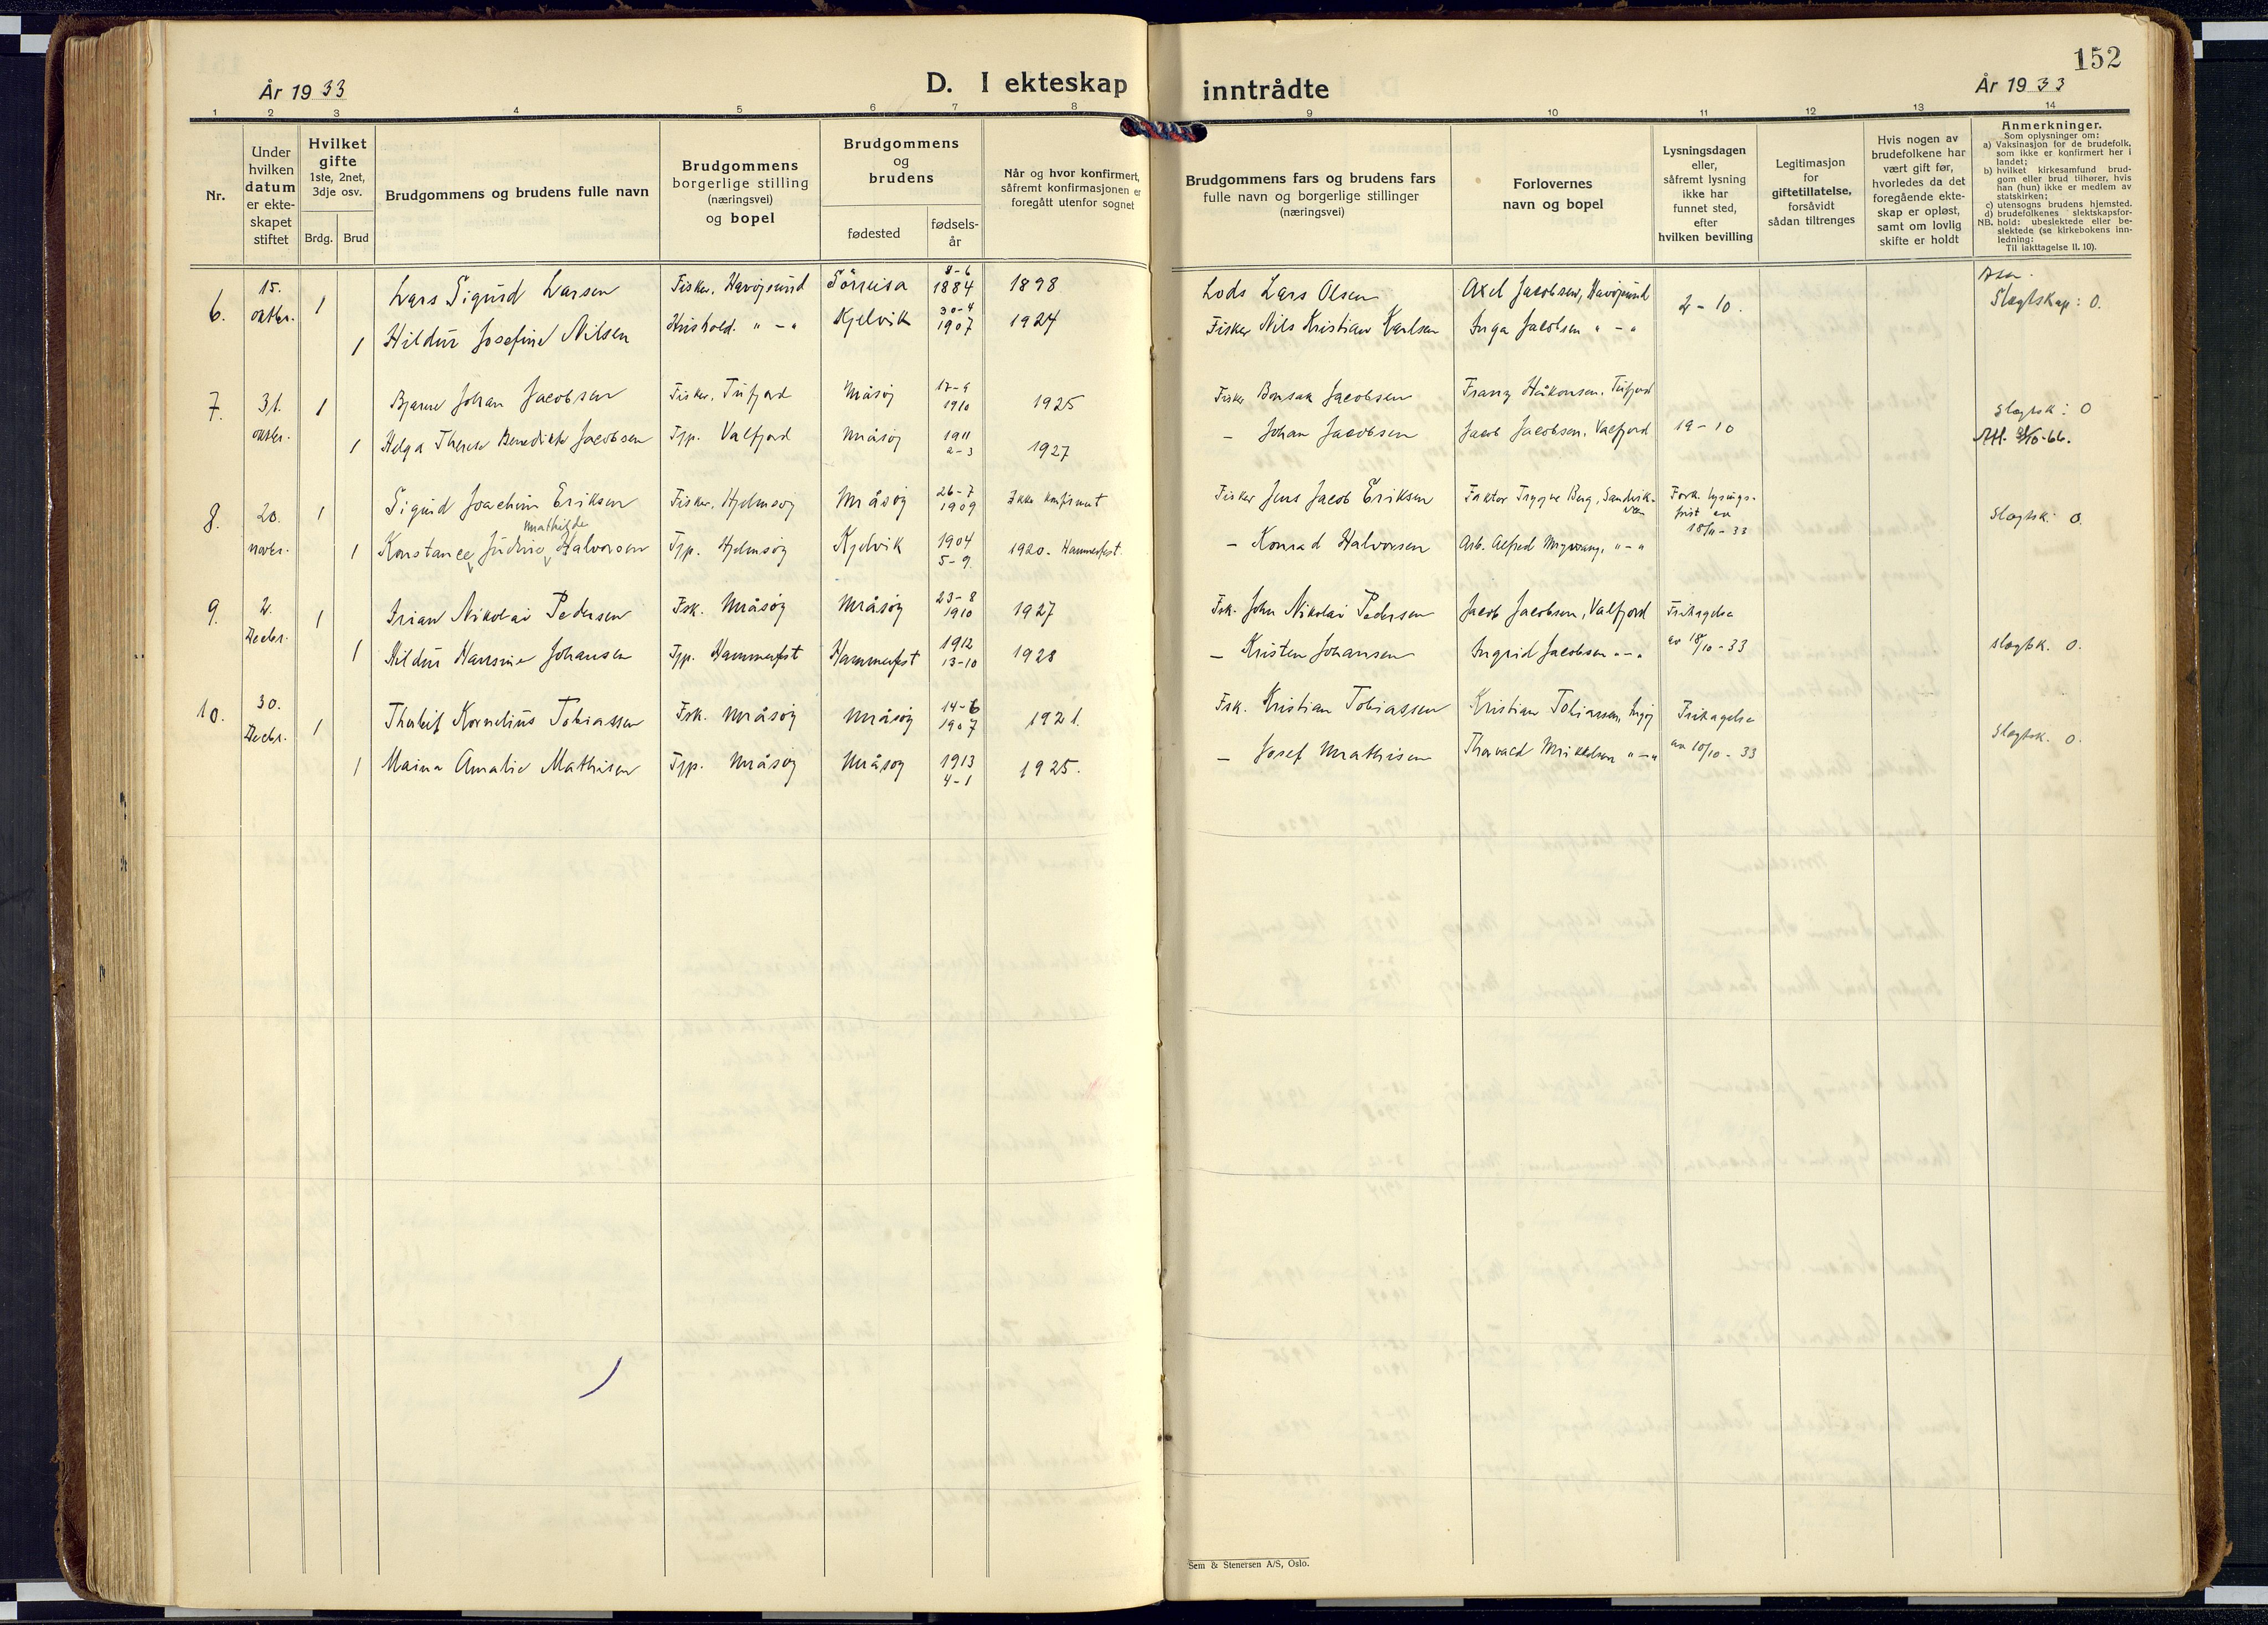 152
År 1933
D. I ekteskap inntrådte
År 1933
1 2 3 4 5 6 7 8 9 10 11 12 13 14
Nr.
Under hvilken datum er ekteskapet stiftet
Hvilket gifte
1ste, 2net, 3dje osv.
Brdg. Brud
Brudgommens og brudens fulle navn
Brudgommens borgerlige stilling (næringsvei) og bopel
Brudgommens og brudens
fødested
fødselsår
Når og hvor konfirmert, såfremt konfirmasjonen er foregått utenfor sognet
Brudgommens fars og brudens fars fulle navn og borgerlige stillinger (næringsvei)
Forlovernes navn og bopel
Lysningsdagen eller, såfremt lysning ikke har funnet sted, efter hvilken bevilling
Legitimasjon for giftetillatelse, forsåvidt sådan tiltrenges
Hvis nogen av brudefolkene har vært gift før, hvorledes da det foregående ekteskap er opløst, samt om lovlig skifte er holdt
Anmerkninger.
Som oplysninger om:
a) Vaksinasjon for de brudefolk, som ikke er konfirmert her i landet;
b) hvilket kirkesamfund brudgom eller brud tilhører, hvis han (hun) ikke er medlem av statskirken;
c) utensogns brudens hjemsted.
d) brudefolkenes slektskapsforhold: ubeslektede eller beslektede (se kirkebokens innledning:
NB. Til iakttagelse II. 10).
6. 15. oktbr. 1 Lars Sigurd Larsen Fisker, Havøysund Sørreisa 8-6 1884 1898 Lods Lars Olsen Axel Jacobsen, Havøysund 2-10. Slegtskap: 0.
1 Hildur Josefine Nilsen Hushold. " - " Kjelvik 30-4 1907 1924 Fisker Nils Kristian Karlsen Inga Jacobsen " - "
7. 31. oktbr. 1 Bjarne Johan Jacobsen Fisker, Tufjord Måsøy 17-9 1910 1925 Fisker Bonsak Jacobsen Franz Håkonsen, Tufjord Slegtsk: 0
1 Helga Therese Benedikte Jacobsen Tjp. Valfjord Måsøy 1911 2-3 1927 - Johan Jacobsen Jacob Jacobsen, Valfjord 19-10
8. 20. novbr. 1 Sigurd Joachim Eriksen Fisker, Hjelmsøy Måsøy 26-7 1909 Ikke konfirmert Fisker Jens Jacob Eriksen Faktor Trygve Berg, Sandvik- Fork. lysningsfrist av 18/11-33 Slegtsk: 0.
1 Konstance Judine Mathilde Halvorsen Tjp. Hjelmsøy Kjelvik 1904 5-9 1920 - Hammerfest. - Konrad Halvorsen Arb. Alfred " - "
9. 2. Decbr. 1 Irian Nikolai Pedersen Fsk. Måsøy Måsøy 23-8 1910 1927 Fsk. John Nikolai Pedersen Jacob Jacobsen, Valfjord Fritagelse av 18/10-33 Slegtsk. 0.
1 Hildur Hansine Johansen Tjp. Hammerfest Hammerfest 1912 13-10 1928 - Kristen Johansen Ingrid Jacobsen " - "
10. 30. Decbr. 1 Thorleif Kornelius Tobiassen Fsk. Måsøy Måsøy 14-6 1907 1921. Fsk. Kristian Tobiassen Kristian Tobiassen, Ingøy Fritagelse av 10/10-33 Slegtsk. 0.
1 Maina Amalie Mathisen Tjp. Måsøy Måsøy 1913 4-1 1925. - Josef Mathisen Thorvald Mikkelsen " - "
Sem & Stenersen A/S, Oslo.